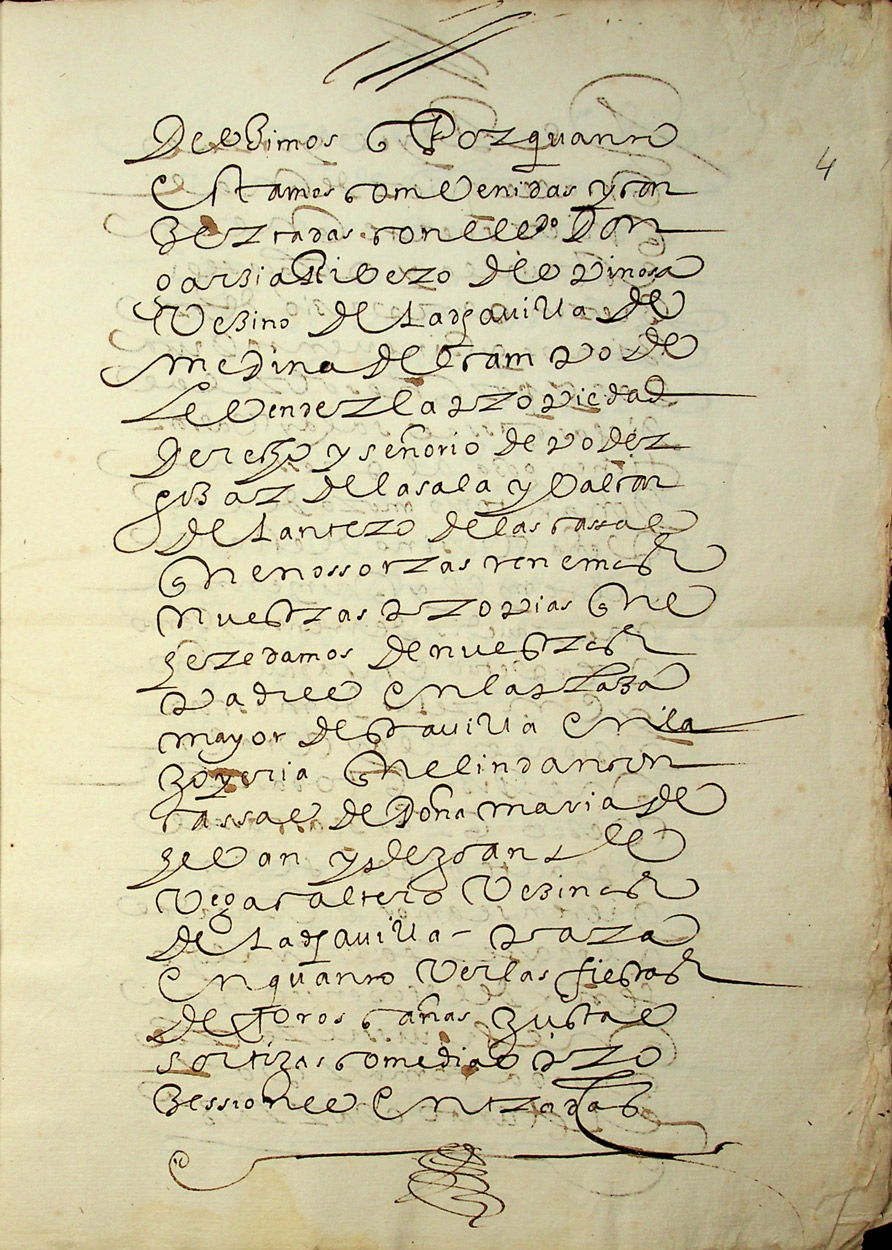 4
Dezimos q Por quanto
estamos comvenidas y con
zertadas con el ldo Don
garzia Ribero de espinosa
Vezino de la dha villa de
medina del campo de
le vender la propiedad
derecho y señorio de poder
gozar de la sala y balcon
delantero de las cassas
que nossotras tenemos
nuestras propias que
heredamos de nuestros
padres en la plaza
mayor de esta villa en la
joyeria que lindan con
cassas de doña maria de
y de
Vezinos
de la dha villa – para
en quanto ver las fiestas
de toros cañas justas
sortizas comedias pro
zessiones entradas